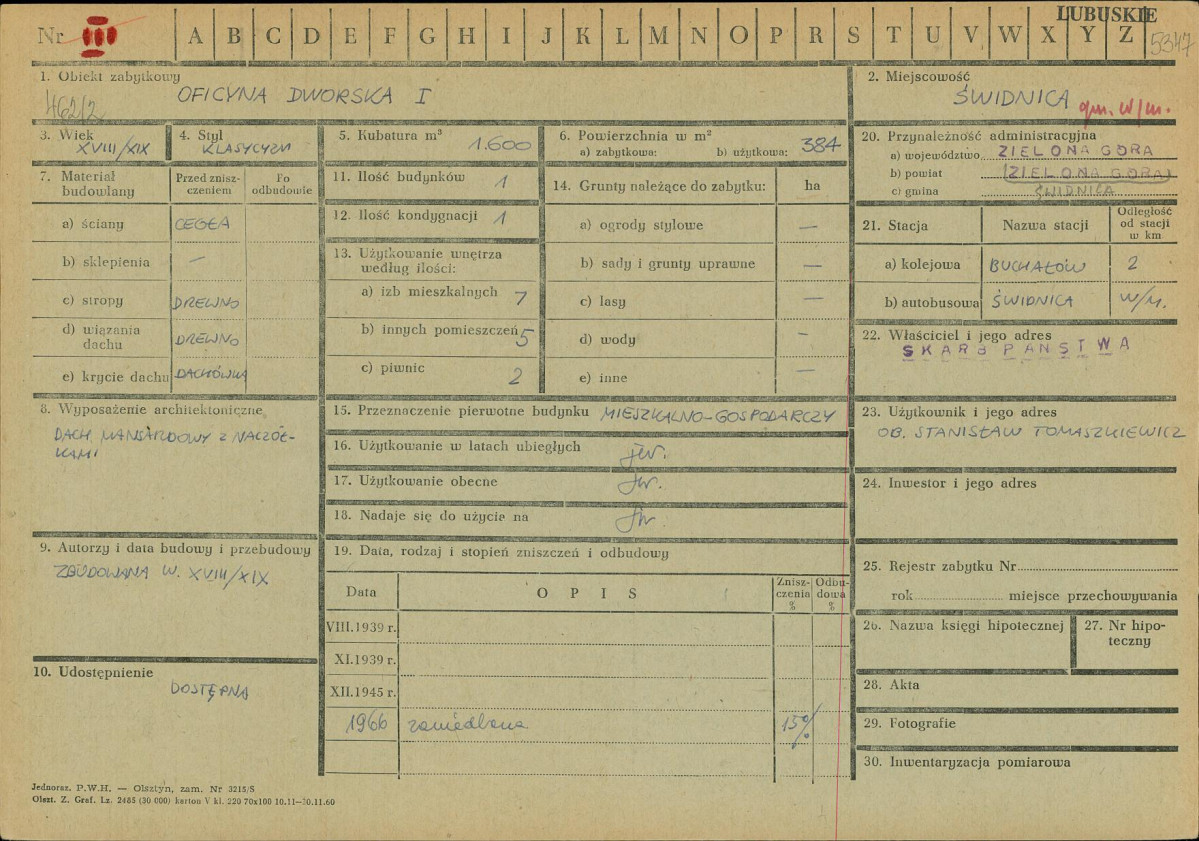 LUBUSKIE
Nr III A B C D E F G H I J K L M N O P R S T U V W X Y Z
5347
1. Obiekt zabytkowy
OFICYNA DWORSKA I
462/2
2. Miejscowość
ŚWIDNICA gm. w/m.
3. Wiek
XVIII/XIX
4. Styl
KLASYCYZM
5. Kubatura m³
1.600
6. Powierzchnia w m²
a) zabytkowa: b) użytkowa: 384
7. Materiał budowlany
Przed znisz-
czeniem
Po
odbudowie
a) ściany CEGŁA
b) sklepienia —
c) stropy DREWNO
d) wiązania
dachu DREWNO
e) krycie dachu DACHÓWKA
8. Wyposażenie architektoniczne
DACH MANSARDOWY Z NACZÓŁ-
KAMI
9. Autorzy i data budowy i przebudowy
ZBUDOWANA W. XVIII/XIX
10. Udostępnienie
DOSTĘPNA
11. Ilość budynków 1
12. Ilość kondygnacji 1
13. Użytkowanie wnętrza
według ilości:
a) izb mieszkalnych 7
b) innych pomieszczeń 5
c) piwnic 2
14. Grunty należące do zabytku: ha
a) ogrody stylowe —
b) sady i grunty uprawne —
c) lasy —
d) wody –
e) inne —
15. Przeznaczenie pierwotne budynku MIESZKALNO-GOSPODARCZY
16. Użytkowanie w latach ubiegłych jw.
17. Użytkowanie obecne jw.
18. Nadaje się do użycia na jw
19. Data, rodzaj i stopień zniszczeń i odbudowy
Data OPIS
Znisz-
czenia
%
Odbu-
dowa
%
VIII.1939 r.
XI.1939 r.
XII.1945 r.
1966 zaniedbana 15%
20. Przynależność administracyjna
a) województwo ZIELONA GÓRA
b) powiat (ZIELONA GÓRA)
c) gmina ŚWIDNICA
21. Stacja Nazwa stacji
Odległość
od stacji
w km
a) kolejowa BUCHAŁÓW 2
b) autobusowa ŚWIDNICA w/m.
22. Właściciel i jego adres
SKARB PAŃSTWA
23. Użytkownik i jego adres
OB. STANISŁAW TOMASZKIEWICZ
24. Inwestor i jego adres
25. Rejestr zabytku Nr
rok miejsce przechowywania
26. Nazwa księgi hipotecznej
27. Nr hipo-
teczny
28. Akta
29. Fotografie
30. Inwentaryzacja pomiarowa
Jednoraz. P.W.H. — Olsztyn, zam. Nr 3215/S
Olszt. Z. Graf. Lz. 2485 (30 000) karton V kl. 220 70x100 10.11—30.11.60